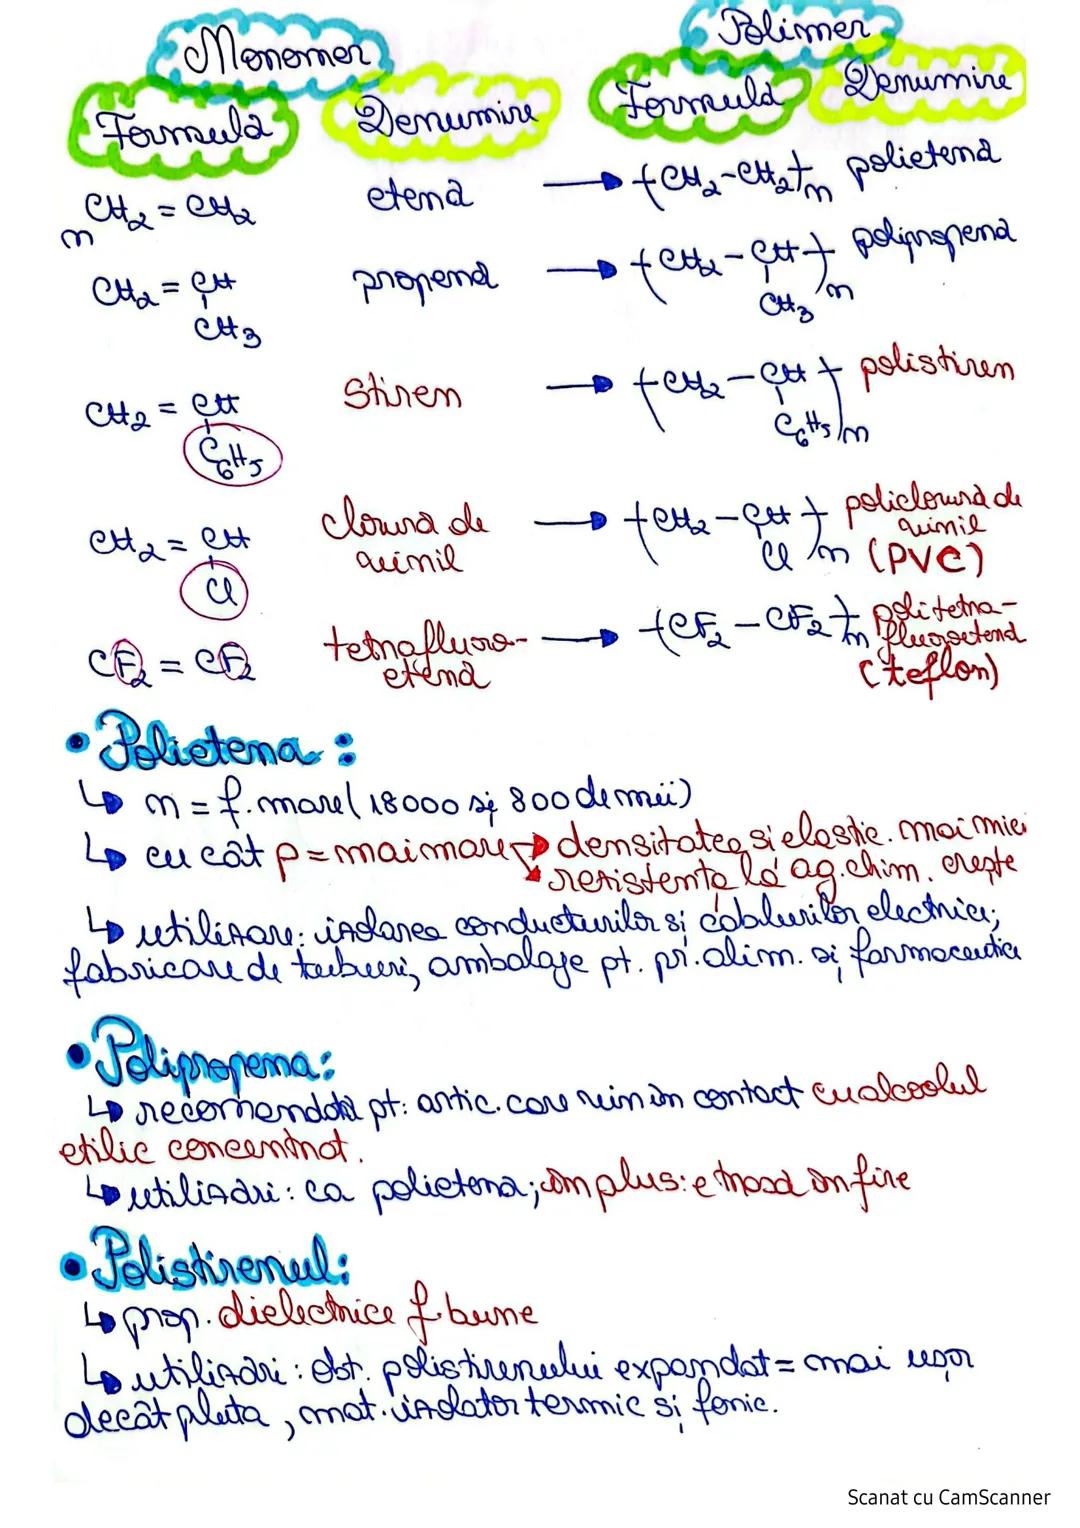 Monomer Polimer
Formulă Denumire Formulă Denumire
n CH2 = CH2 etenă → -(CH2-CH2)-n polietenă
CH2 = CH propenă → -(CH2 - CH)-n polipropenă
CH3 CH3
CH2 = CH Stiren → -(CH2 - CH)-n polistiren
C6H5 C6H5
CH2 = CH clorură de → -(CH2 - CH)-n policlorură de
Cl vinil Cl vinil
(PVC)
CF2 = CF2 tetrafluoro- → -(CF2 - CF2)-n politetra-
etenă fluoroetenă
(teflon)
• Polietena:
↳ n = f. mare (18000 și 800 de mii)
↳ cu cât p = mai mare → densitatea și elastic. mai mici
rezistența la ag. chim. crește
↳ utilizare: izolarea conducturilor și cablurilor electrice;
fabricare de tuburi, ambalaje pt. pr. alim. și farmaceutice
• Polipropena:
↳ recomandată pt: artic. care vin în contact cu alcoolul
etilic concentrat.
↳ utilizări: ca polietena; în plus: e trasă în fire
• Polistirenul:
↳ prop. dielectrice f. bune
↳ utilizări: obt. polistirenului expandat = mai ușor
decât pluta, mat. izolator termic și fonic.
Scanat cu CamScanner